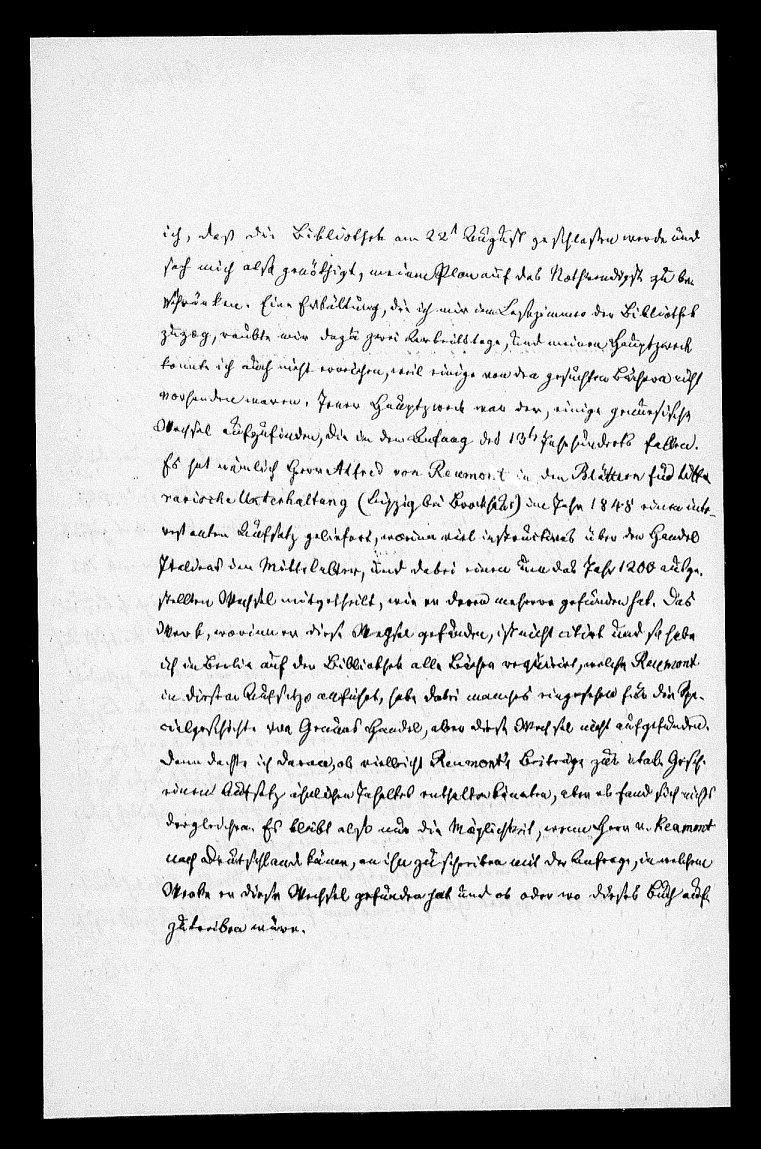 ich, daß die Bibliothek am 22t August geschlossen werde und
sah mich also genöthigt, meinen Plan auf das Nothwendigste zu be-
schränken. Eine Erkältung, die ich mir im Lesezimmer der Bibliothek
zuzog, raubte mir dazu zwei Arbeitstage, und meinen Hauptzweck
konnte ich auch nicht erreichen, weil einige von den gesuchten Büchern nicht
vorhanden waren. Jener Hauptzweck war der, einige genuesische
Wechsel aufzufinden, die in den Anfang des 13ts Jahrhunderts fallen.
Es hat nämlich Herr Alfred von Reumont in den Blättern für litte-
rarische Unterhaltung (Leipzig bei Brockhaus) im Jahr 1848 einen inte-
ressanten Aufsatz geliefert, worinn viel instructives über den Handel
Italiens im Mittelalter, und dabei einen um das Jahr 1200 ausge-
stellten Wechsel mitgetheilt, wie er deren mehrere gefunden hat. Das
Werk, worinn er diese Wechsel gefunden, ist nicht citirt und so habe
ich in Berlin auf der Bibliothek alle Bücher requirirt, welche Reumont
in diesem Aufsatze anführt, habe dabei manches eingesehen für die Spe-
cialgeschichte von Genuas Handel, aber diese Wechsel nicht aufgefunden.
Dann dachte ich daran, ob vielleicht Reumont's Beiträge zur ital. Gesch.
einen Aufsatz ähnlichen Inhaltes enthalten könnten, aber es fand sich nichts
dergleichen. Es bleibt also nur die Möglichkeit, wenn Herr v. Reumont
nach Deutschland käme, an ihn zu schreiben mit der Anfrage, in welchem
Werke er diese Wechsel gefunden hat und ob oder wo dieses Buch auf-
zutreiben wäre.